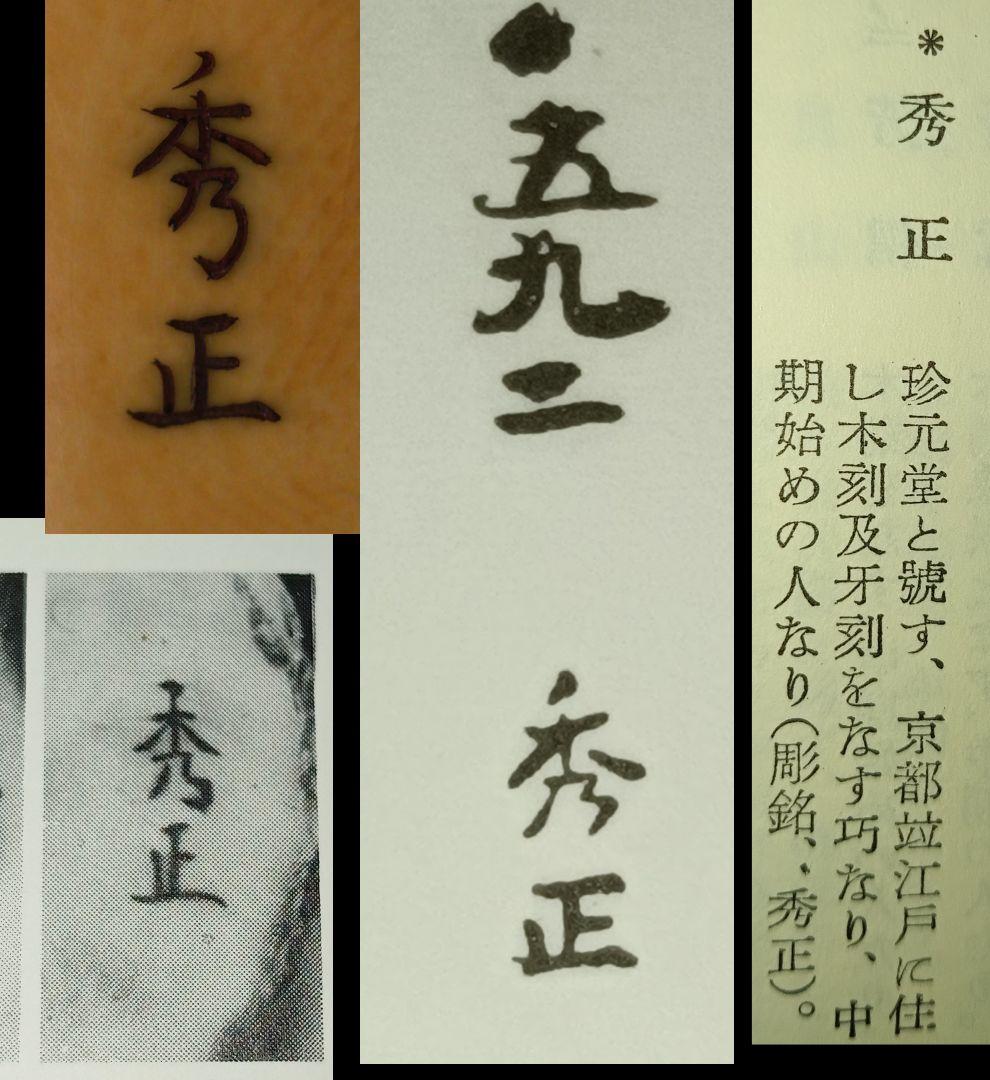 秀正
秀正
●五九二
秀正
＊秀正
珍元堂と號す、京都竝江戸に住
し木刻及牙刻をなす巧なり、中
期始めの人なり（彫銘、秀正）。